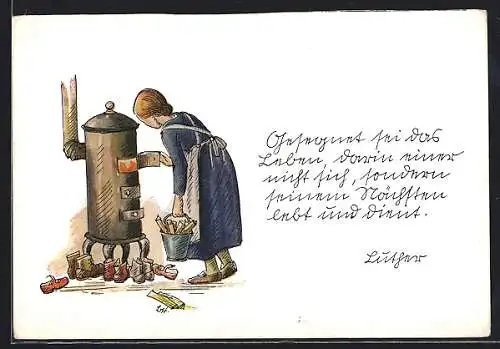 Gesegnet sei das
Leben, darin einer
nicht sich, sondern
seinem Nächsten
lebt und dient.
Luther